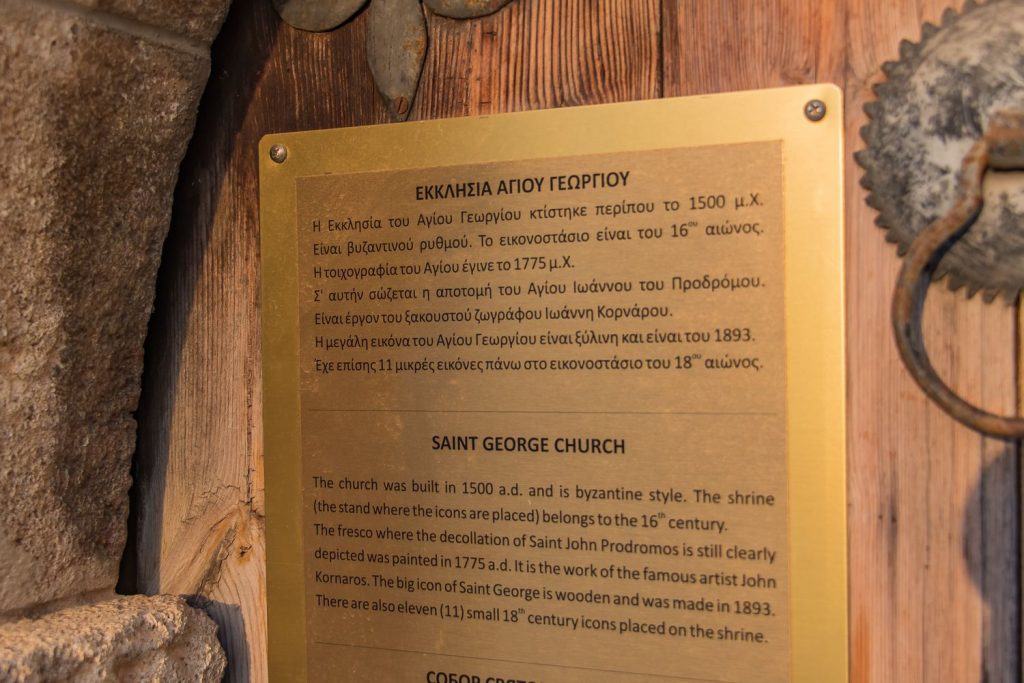 ΕΚΚΛΗΣΙΑ ΑΓΙΟΥ ΓΕΩΡΓΙΟΥ
Η Εκκλησία του Αγίου Γεωργίου κτίστηκε περίπου το 1500 μ.Χ.
Είναι βυζαντινού ρυθμού. Το εικονοστάσιο είναι του 16ου αιώνος.
Η τοιχογραφία του Αγίου έγινε το 1775 μ.Χ.
Σ' αυτήν σώζεται η αποτομή του Αγίου Ιωάννου του Προδρόμου.
Είναι έργον του ξακουστού ζωγράφου Ιωάννη Κορνάρου.
Η μεγάλη εικόνα του Αγίου Γεωργίου είναι ξύλινη και είναι του 1893.
Έχε επίσης 11 μικρές εικόνες πάνω στο εικονοστάσιο του 18ου αιώνος.
SAINT GEORGE CHURCH
The church was built in 1500 a.d. and is byzantine style. The shrine
(the stand where the icons are placed) belongs to the 16th century.
The fresco where the decollation of Saint John Prodromos is still clearly
depicted was painted in 1775 a.d. It is the work of the famous artist John
Kornaros. The big icon of Saint George is wooden and was made in 1893.
There are also eleven (11) small 18th century icons placed on the shrine.
СОБОР